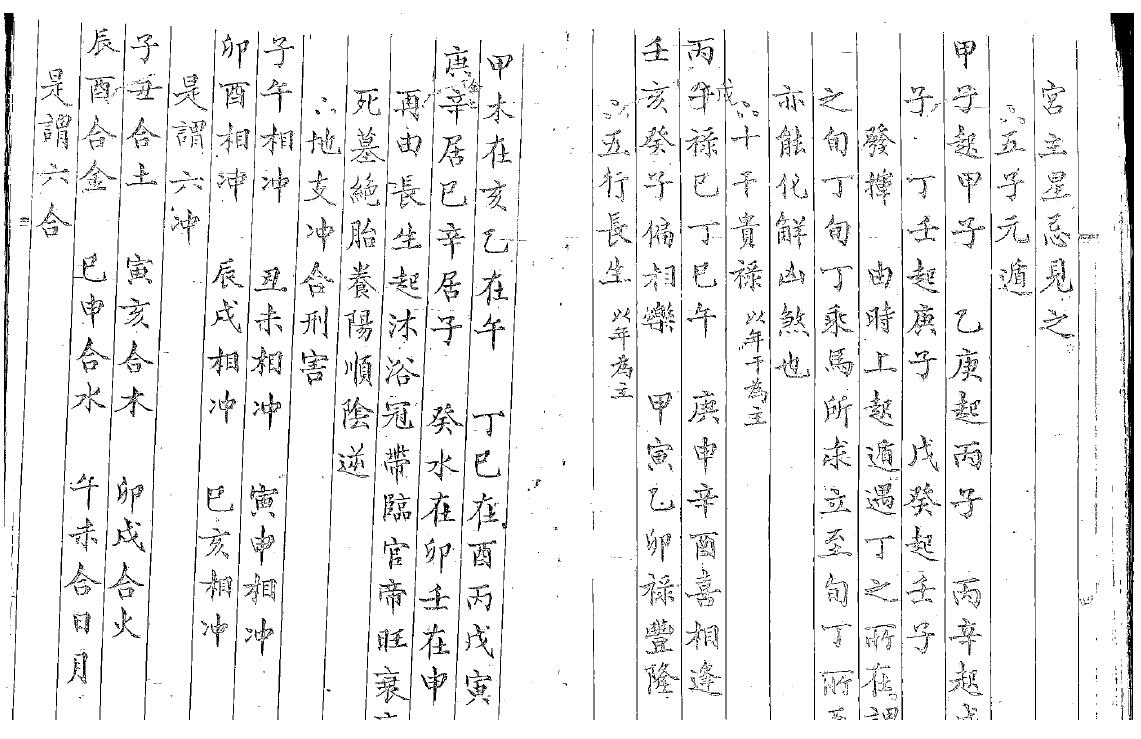 宮主星忌見之
∴五子元遁
甲子起甲子　乙庚起丙子　丙辛起戊
子·丁壬起庚子　戊癸起壬子
發揮　由時上起遁遇丁之所在謂
之旬丁旬丁乘馬所求立至旬丁所至
亦能化解凶煞也
∴十干貴祿 以年干為主
丙戊祿巳丁巳午　庚申辛酉喜相逢
壬亥癸子偏相樂　甲寅乙卯祿豐隆
∴五行長生 以年為主
甲木在亥乙在午　丁巳在酉丙戊寅
庚金辛居巳辛居子　癸水在卯壬在申
再由長生起沐浴冠帶臨官帝旺衰
死墓絕胎養陽順陰逆
∴地支冲合刑害
子午相冲　丑未相冲　寅申相冲
卯酉相冲　辰戌相冲　巳亥相冲
是謂六冲
子丑合土　寅亥合木　卯戌合火
辰酉合金　巳申合水　午未合日月
是謂六合